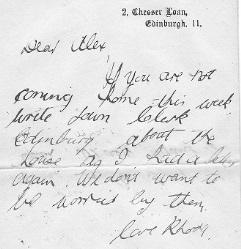 2, Chesser Loan,
Edinburgh, 11.
Dear Alex
If you are not
coming home this week
write Town Clerk
Edinburg about the
house as I had a letter
again. We don't want to
be worried by them.
Love Rhoda